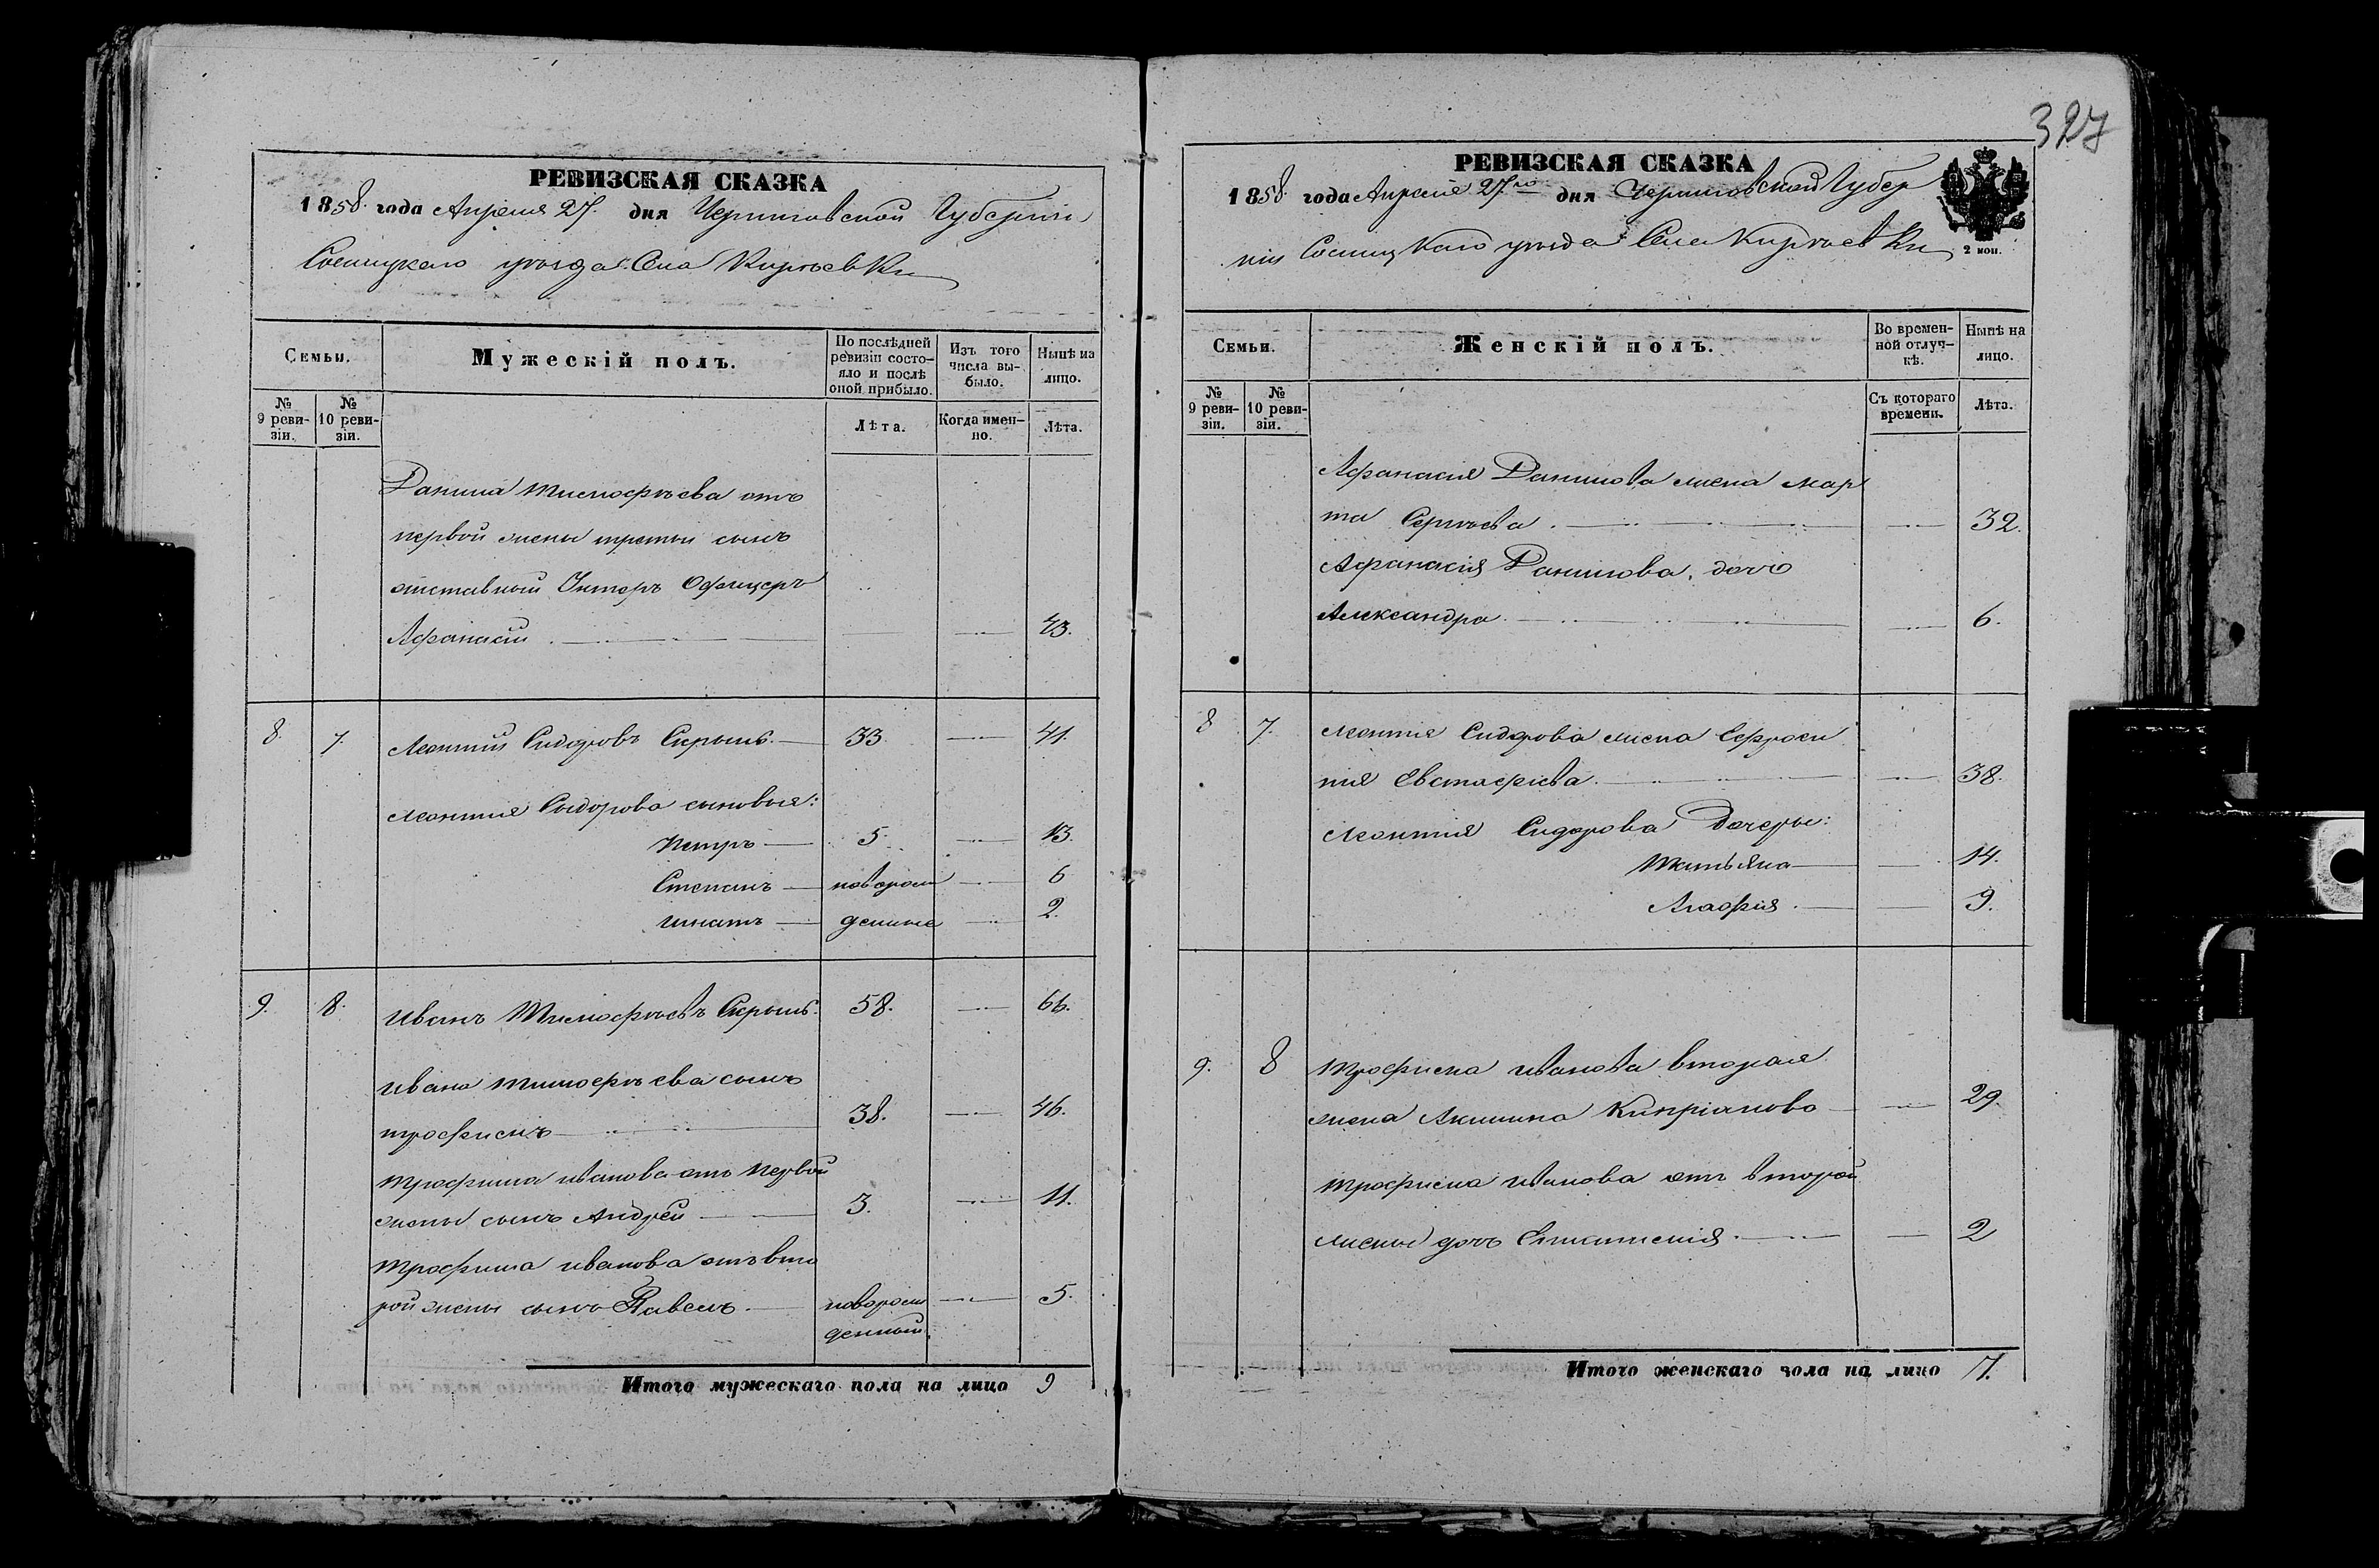 327
РЕВИЗСКАЯ СКАЗКА
1858. года Апреля 27. дня Черниговской Губерніи
Сосницкаго уѣзда Села Киріевки
Семьи.
Мужескій полъ.
По послѣдней ревизіи состояло и послѣ оной прибыло.
Изъ того числа выбыло.
Нынѣ на лицо.
№ 9 ревизіи.
№ 10 ревизіи.
Лѣта.
Когда именно.
Лѣта.
Данила Тимофѣева отъ
первой жены третій сынъ
отставный Унтеръ Офицеръ
Афанасій — 43.
8. 7. Леонтій Сидоровъ — 33 — 41.
Леонтія Сыдорова сыновья:
Петръ — 5. — 13.
Степанъ — новорож — 6
Игнатъ — денные — 2.
9. 8. Иванъ Тимофѣевъ 58. — 66.
Ивана Тимофѣева сынъ
Трофимъ — 38. — 46.
Трофима Иванова отъ первой
жены сынъ Андрей — 3. — 11.
Трофима Иванова отъ вто
рой жены сынъ Павелъ — новорож — 5.
денный.
Итого мужескаго пола на лицо 9
РЕВИЗСКАЯ СКАЗКА
1858. года Апреля 27го дня Черниговской Губер
ніи Сосницкаго уѣзда Села Киріевки
2 коп.
Семьи.
Женскій полъ.
Во временной отлучкѣ.
Нынѣ на лицо.
№ 9 ревизіи.
№ 10 ревизіи.
Съ котораго времени.
Лѣта.
Афанасія Данилова жена Мар
та Сергѣева. — 32.
Афанасія Данилова. дочь
Александра. — 6.
8 7. Леонтія Сидорова жена Ефроси
нія Евстафіева. — 38.
Леонтія Сидорова Дочеры:
Татьяна — 14.
Агафія. — 9.
9. 8 Трофима Иванова вторая
жена Акилина Кипріанова — 29.
Трофима Иванова отъ второй
жены дочь — 2
Итого женскаго пола на лицо 7.